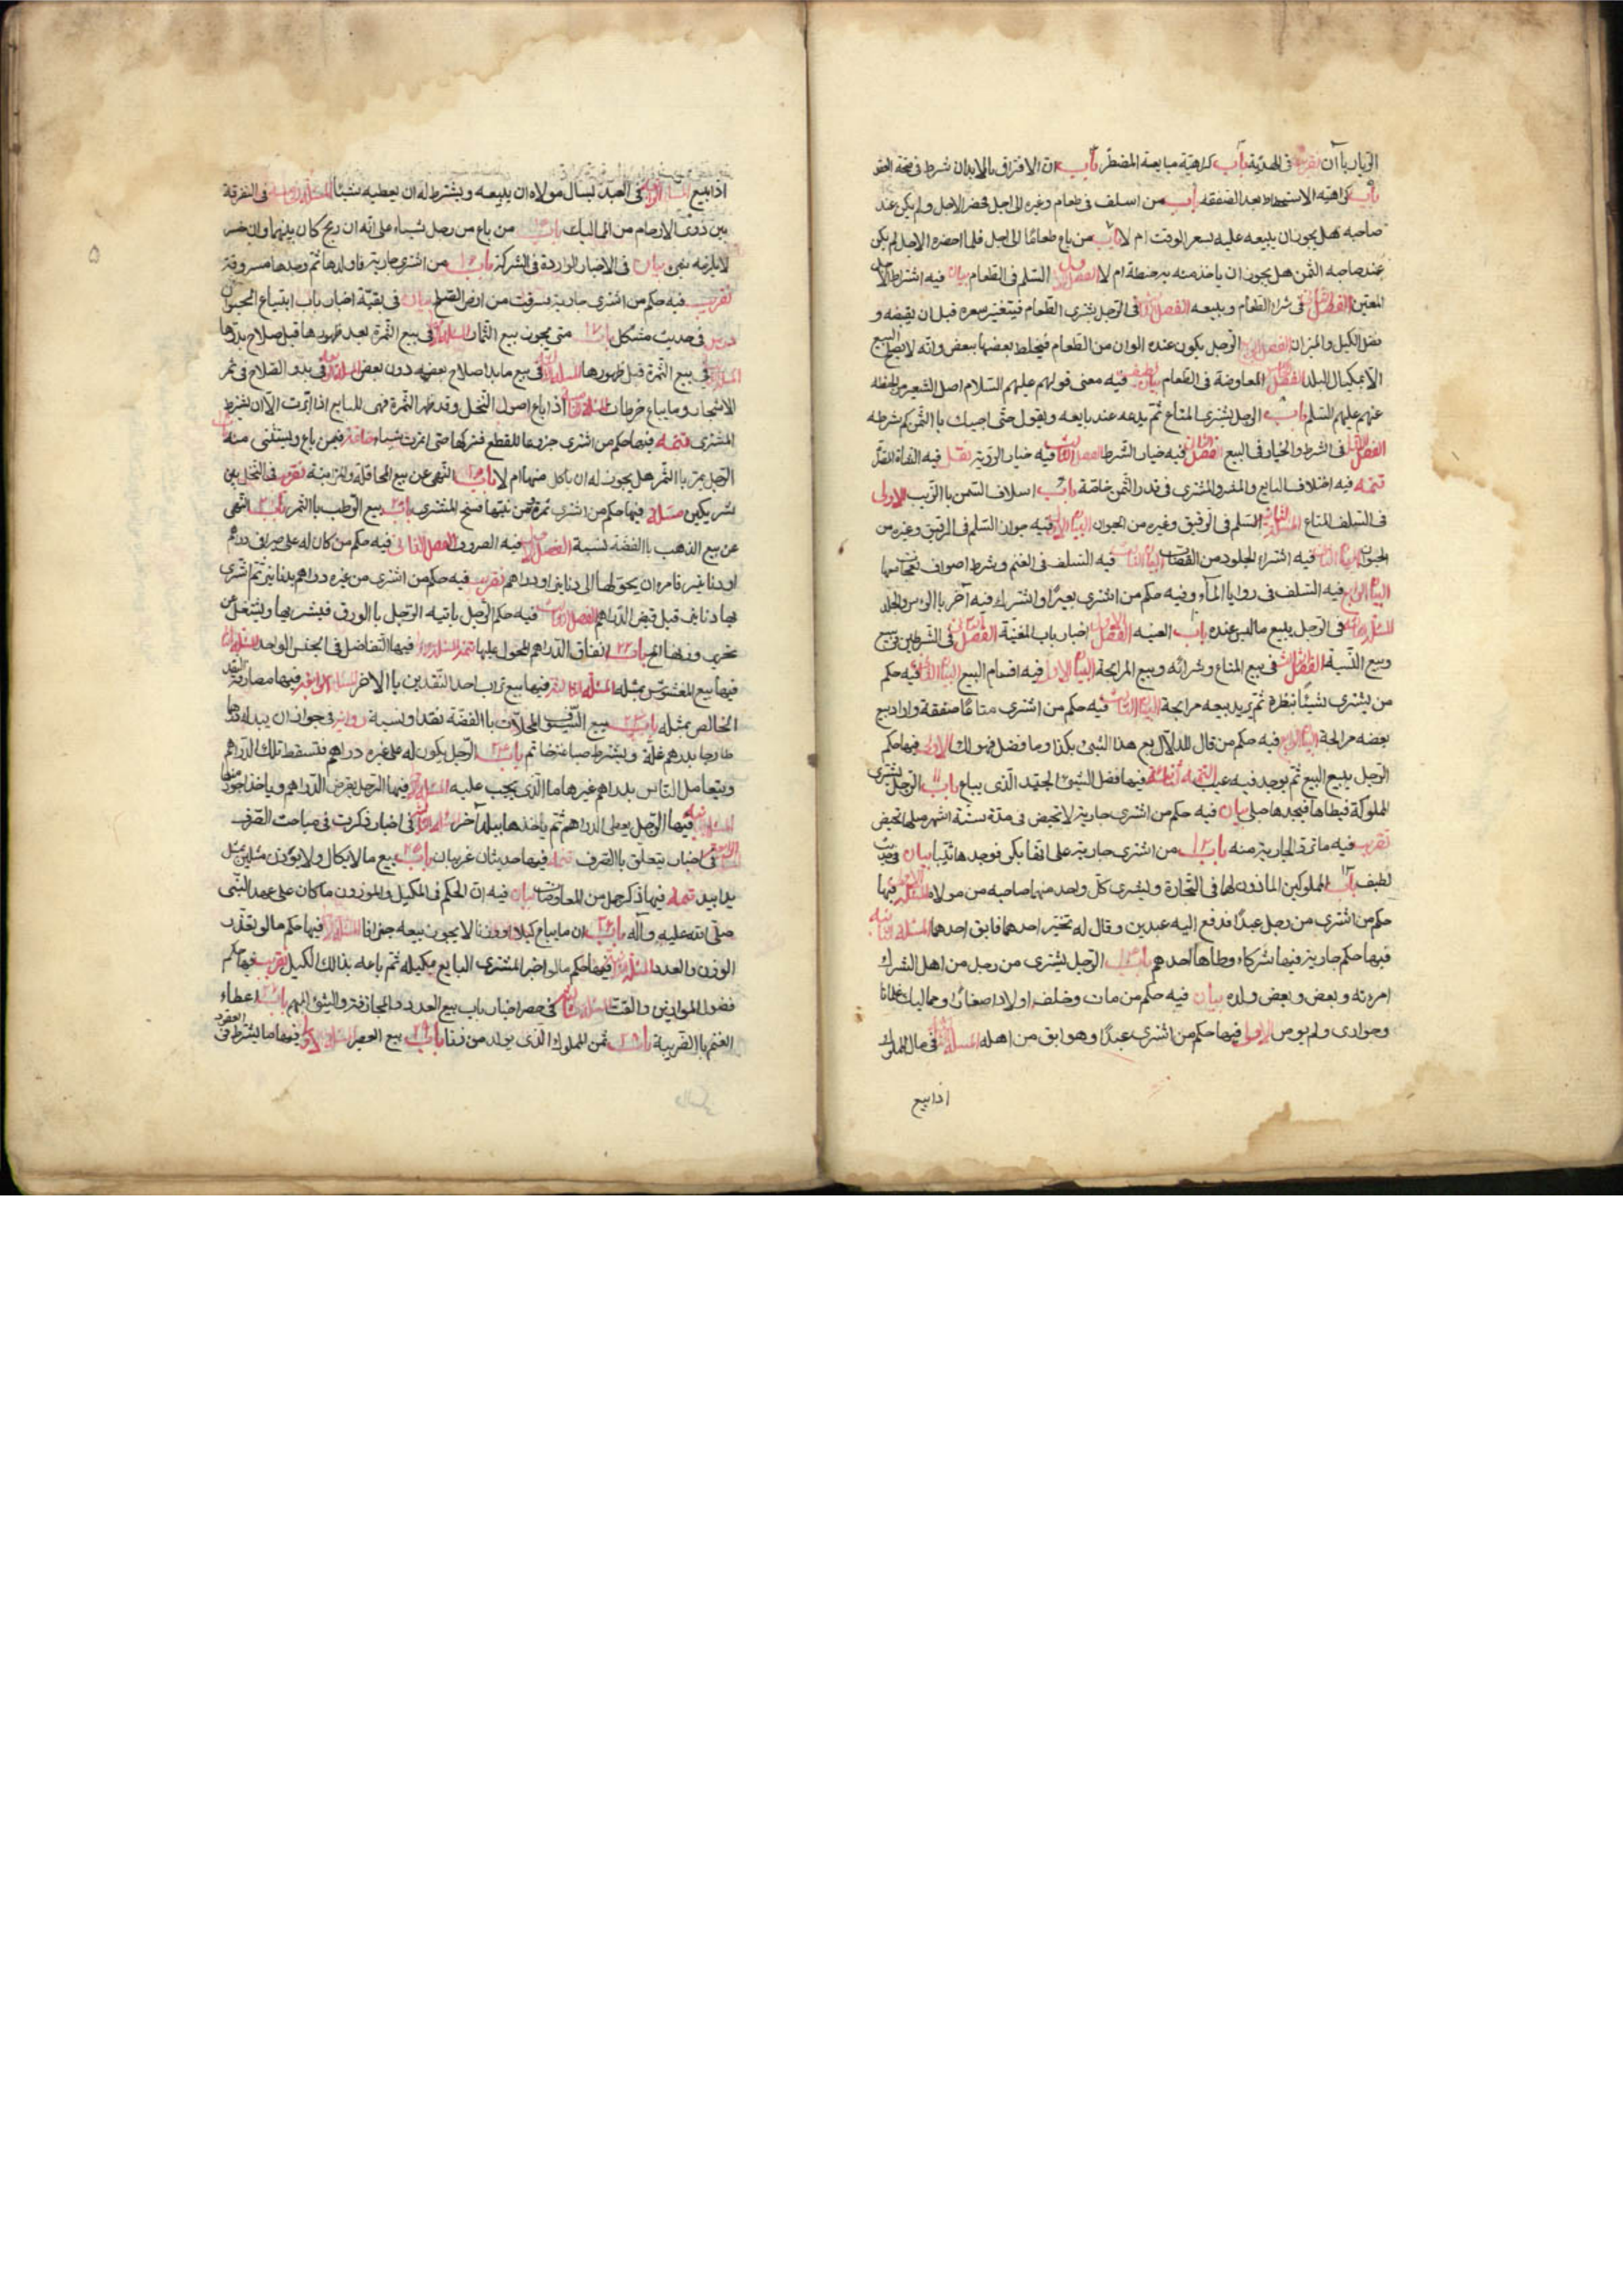 الربا بيان تقريب في الهدية باب كراهية مبايعة المضطر باب ان الافتراق بالابدان شرط في صحة العقد
باب كراهية الاستحطاط بعد الصفقة باب من اسلف في طعام وغيره الى اجل فحضر الاجل ولم يكن عند
صاحبه هل يجوز ان يبيعه عليه بسعر الوقت ام لا باب من باع طعامًا الى اجل فلما احضره الاجل لم يكن
عند صاحبه الثمن هل يجوز ان ياخذ منه حنطة ام لا الفصل الاول السلم في الطعام بيان فيه اشتراط الاجل
المعين الفصل الثاني في شراء الطعام وبيعه الفصل في الرجل يشترى الطعام فيتغير سعره قبل ان يقبضه و
فضل الكيل والميزان الفصل الرابع الرجل يكون عنده الوان من الطعام فيخلط بعضها ببعض وانه لا يصلح البيع
الا بمكيال البلد الفصل المعاوضة في الطعام بيان لطيف فيه معنى قولهم عليهم السلام اصل الشعير من الحنطة
عنهم عليهم السلم باب الرجل يشترى المتاع ثم يدعه عند بايعه ويقول حتى اجيك باالثمن كم شرطه
الفصل الاول في الشرط والخيار في البيع الفصل الثاني فيه خيار الشرط الفصل الثالث فيه خيار الروية
تتمه فيه اختلاف البايع والمشترى في قدر الثمن خاصة باب اسلاف السمن باالزيت الاولى
في السلف للمتاع المسئلة الثانية السلم في الرقيق وغيره من الحيوان البيان الاول فيه جواز السلم في الرقيق وغيره من
الحيوان البيان الثاني فيه اشتراء الجلود من القصاب البيان الثالث فيه السلف في الغنم وشرط اصواف نعجات
البيان الرابع فيه السلف في روايا المآء وفيه حكم من اشترى بعيرًا واشترك فيه آخر باالراس والجلد
في الرجل يبيع ماليس عنده باب العينه الفصل الاول اخبار باب العينة الفصل الثاني في الشرطين في بيع
وبيع النسية الفصل الثالث في بيع المتاع وشرائه وبيع المرابحة البيان الاول فيه اقسام البيع البيان الثاني فيه حكم
من يشترى شيئًا بنظرة ثم يريد بيعه مرابحة البيان الثالث فيه حكم من اشترى متاعًا صفقة واراد بيع
بعضه مرابحة البيان الرابع فيه حكم من قال للدلال بع هذا الشئ بكذا وما فضل فهو لك الاولى فيها حكم
الرجل يبيع البيع ثم يوجد فيه عيب التتمة الثانية فيها فضل الشئ الجيد الذى يباع باب الرجل يشترى
المملوكة فيطاها فيجدها حبلى بيان فيه حكم من اشترى جارية لا تحيض في مدة ستة اشهر مثلها تحيض
تقريب فيه ما ترد الجارية منه باب ١٢ من اشترى جارية على انها بكر فوجدها ثيبا بيان في حديث
لطيف باب المملوكين الماذون لها في التجارة ويشترى كل واحد منهما صاحبه من مولاه المسئلة الاولى فيها
حكم من اشترى من رجل عبدًا فدفع اليه عبدين وقال له تخير احدهما فابق احدهما المسئلة الثانية
فيها حكم جارية فيها شركاء وطاها احدهم باب الرجل يشترى من رجل من اهل الشرك
امرءته وبعض وبعض ولده بيان فيه حكم من مات وخلف اولادا صغارًا ومماليك غلمانا
وجوارى ولم يوص الاولى فيها حكم من اشترى عبدًا وهو ابق من اهله المسئلة الثانية في مال المملوك
اذا بيع
۵
اذا بيع في العبد يسال مولاه ان يبيعه ويشترط له ان يعطيه شيئا المسئلة في التفرقة
بين ذوى الارحام من المماليك باب من باع من رجل شيئاء على انه ان ربح كان بينهما وان خسر
لا يلزمه شئ بيان في الاخبار الواردة في الشركة باب من اشترى جارية فاولدها ثم وجدها مسروقة
تقريب فيه حكم من اشترى جارية سرقت من ارض الصلح بيان في بقية اخبار باب ابتياع الحيوان
في حديث مشكل باب متى يجوز بيع الثمار في بيع الثمرة بعد ظهورها قبل صلاح بدوها
في بيع الثمرة قبل ظهورها المسئلة في بيع ما بدا صلاح بعضه دون بعض المسئلة في بدو الصلاح في ثمر
الاشجار وما يباع خرطات المسئلة اذا باع اصول النخل وقد ظهر الثمرة فهى للبايع اذا ابرت الا ان يشترط
المشترى تتمه فيها حكم من اشترى جزوعا للقطع فتركها حتى اثمرت خاتمة فيمن باع ويستثنى منه
الرجل يمر باالثمر هل يجوز له ان ياكل منها ام لا باب النهى عن بيع المحاقلة والمزابنة تقريب في النخل بين
شريكين مسئلة فيها حكم من اشترى باب بيع الرطب باالتمر باب النهى
عن بيع الذهب باالفضة نسية الفصل الاول فيه الصروف الفصل الثاني فيه حكم من كان له على صيرافى دراهم
او دنانير فامره ان يحول لها الى دنانير او دراهم تقريب فيه حكم من اشترى من غيره دراهم بدنانير ثم اشترى
بها دنانير قبل قبض الدراهم الفصل الثالث فيه حكم الرجل ياتيه الرجل باالورق فيشتريها ويشتغل عن
تحرير وزنها الخ باب ٢٢ انفاق الدراهم المحمول عليها تتمة المسئلة الاولى فيها التفاضل في الجنس الواحد المسئلة
فيها بيع المغشوش بمثله المسئلة الثالثة فيها بيع تراب احد النقدين باالاخر المسئلة الرابعة فيها مصارفة
الخالص بمثله باب ٢٣ بيع السيوف المحلات باالفضة نقدا ونسية رواية في جواز ان يبدله درهما
طازجا بدرهم غلة ويشترط صياغة خاتم باب ٢٤ الرجل يكون له على غيره دراهم فتسقط تلك الدراهم
ويتعامل الناس بدراهم غيرها ما الذى يجب عليه المسئلة فيها الرجل يقرض الدراهم وياخذ اجود منها
المسئلة الثانية فيها الرجل يعطى الدراهم ثم ياخذها ببلد آخر المسئلة الثالثة في اخبار ذكرت في مباحث الصرف
الرابعة في اخبار يتعلق باالصرف تتمة فيها حديثان غريبان باب ٢٥ بيع ما لا يكال ولا يوزن مثلين بمثل
يدا بيد تتمه فيها ذكر جمل من المعاوضات بيان فيه ان الحكم في المكيل والموزون ما كان على عهد النبى
صلى الله عليه وآله باب ان ما يباع كيلا او وزنا لا يجوز بيعه جزافا المسئلة فيها حكم ما لو تعذر
الوزن والعدد المسئلة فيها حكم ما لو اخبر المشترى البايع بكيله ثم باعه بذالك الكيل تقريب فيها حكم
فضول الموازين والقت في حصر اخبار باب بيع العدد والمجازفة والشئ المبهم باب اعطاء
الغنم باالضريبة باب ٢٨ ثمن المملوك الذى يولد من زنا باب ٢٩ بيع العصير المسئلة الاولى فيها ما يشترط في
العقود